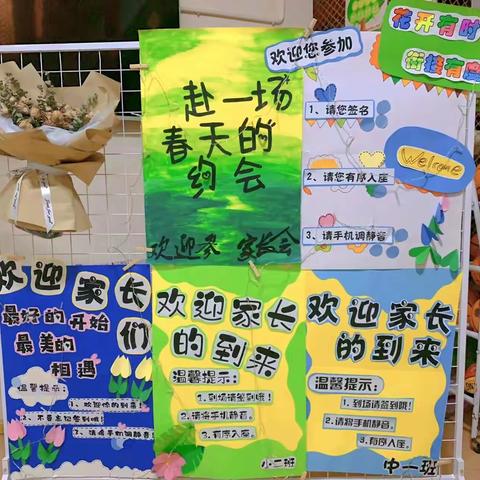 赴一场
春天的
约会
欢迎参 家长会
欢迎您参加
1、请您签名
2、请您有序入座
3、请手机调静音
花开有时
衔接有度
Welcome
欢迎家长
们
最好的开始
最美的
相遇
温馨提示:
1、欢迎你的到来!
2、不要忘记签到哦!
3、请将手机调静音!
欢迎家长
的到来
温馨提示:
1.到场请签到哦!
2.请将手机静音。
3.有序入座。
小二班
欢迎家长
的到来
温馨提示:
1.到场请签到哦!
2.请将手机静音。
3.有序入座。
中一班